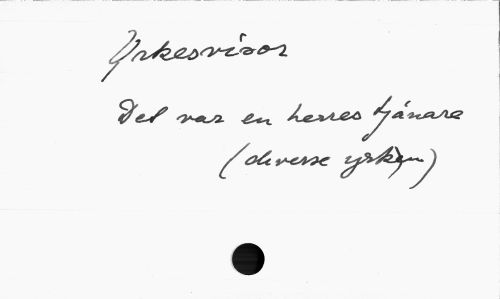 Yrkesvisor
Det var en herres tjänare
(diverse yrken)